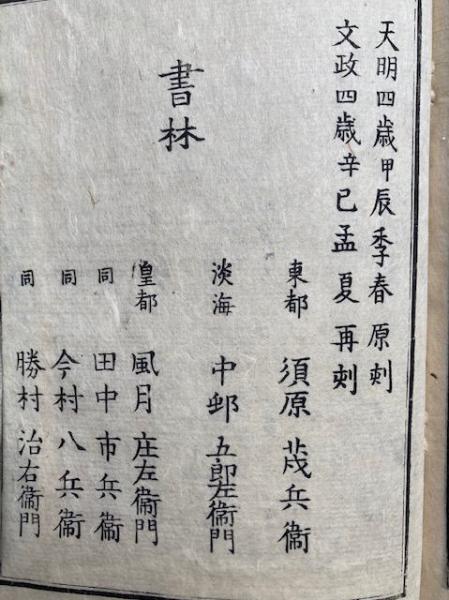 天明四歳甲辰季春原刻
文政四歳辛巳孟夏再刻
書林
東都 須原茂兵衞
淡海 中邨五郎左衞門
皇都 風月庄左衞門
同 田中市兵衞
同 今村八兵衞
同 勝村治右衞門